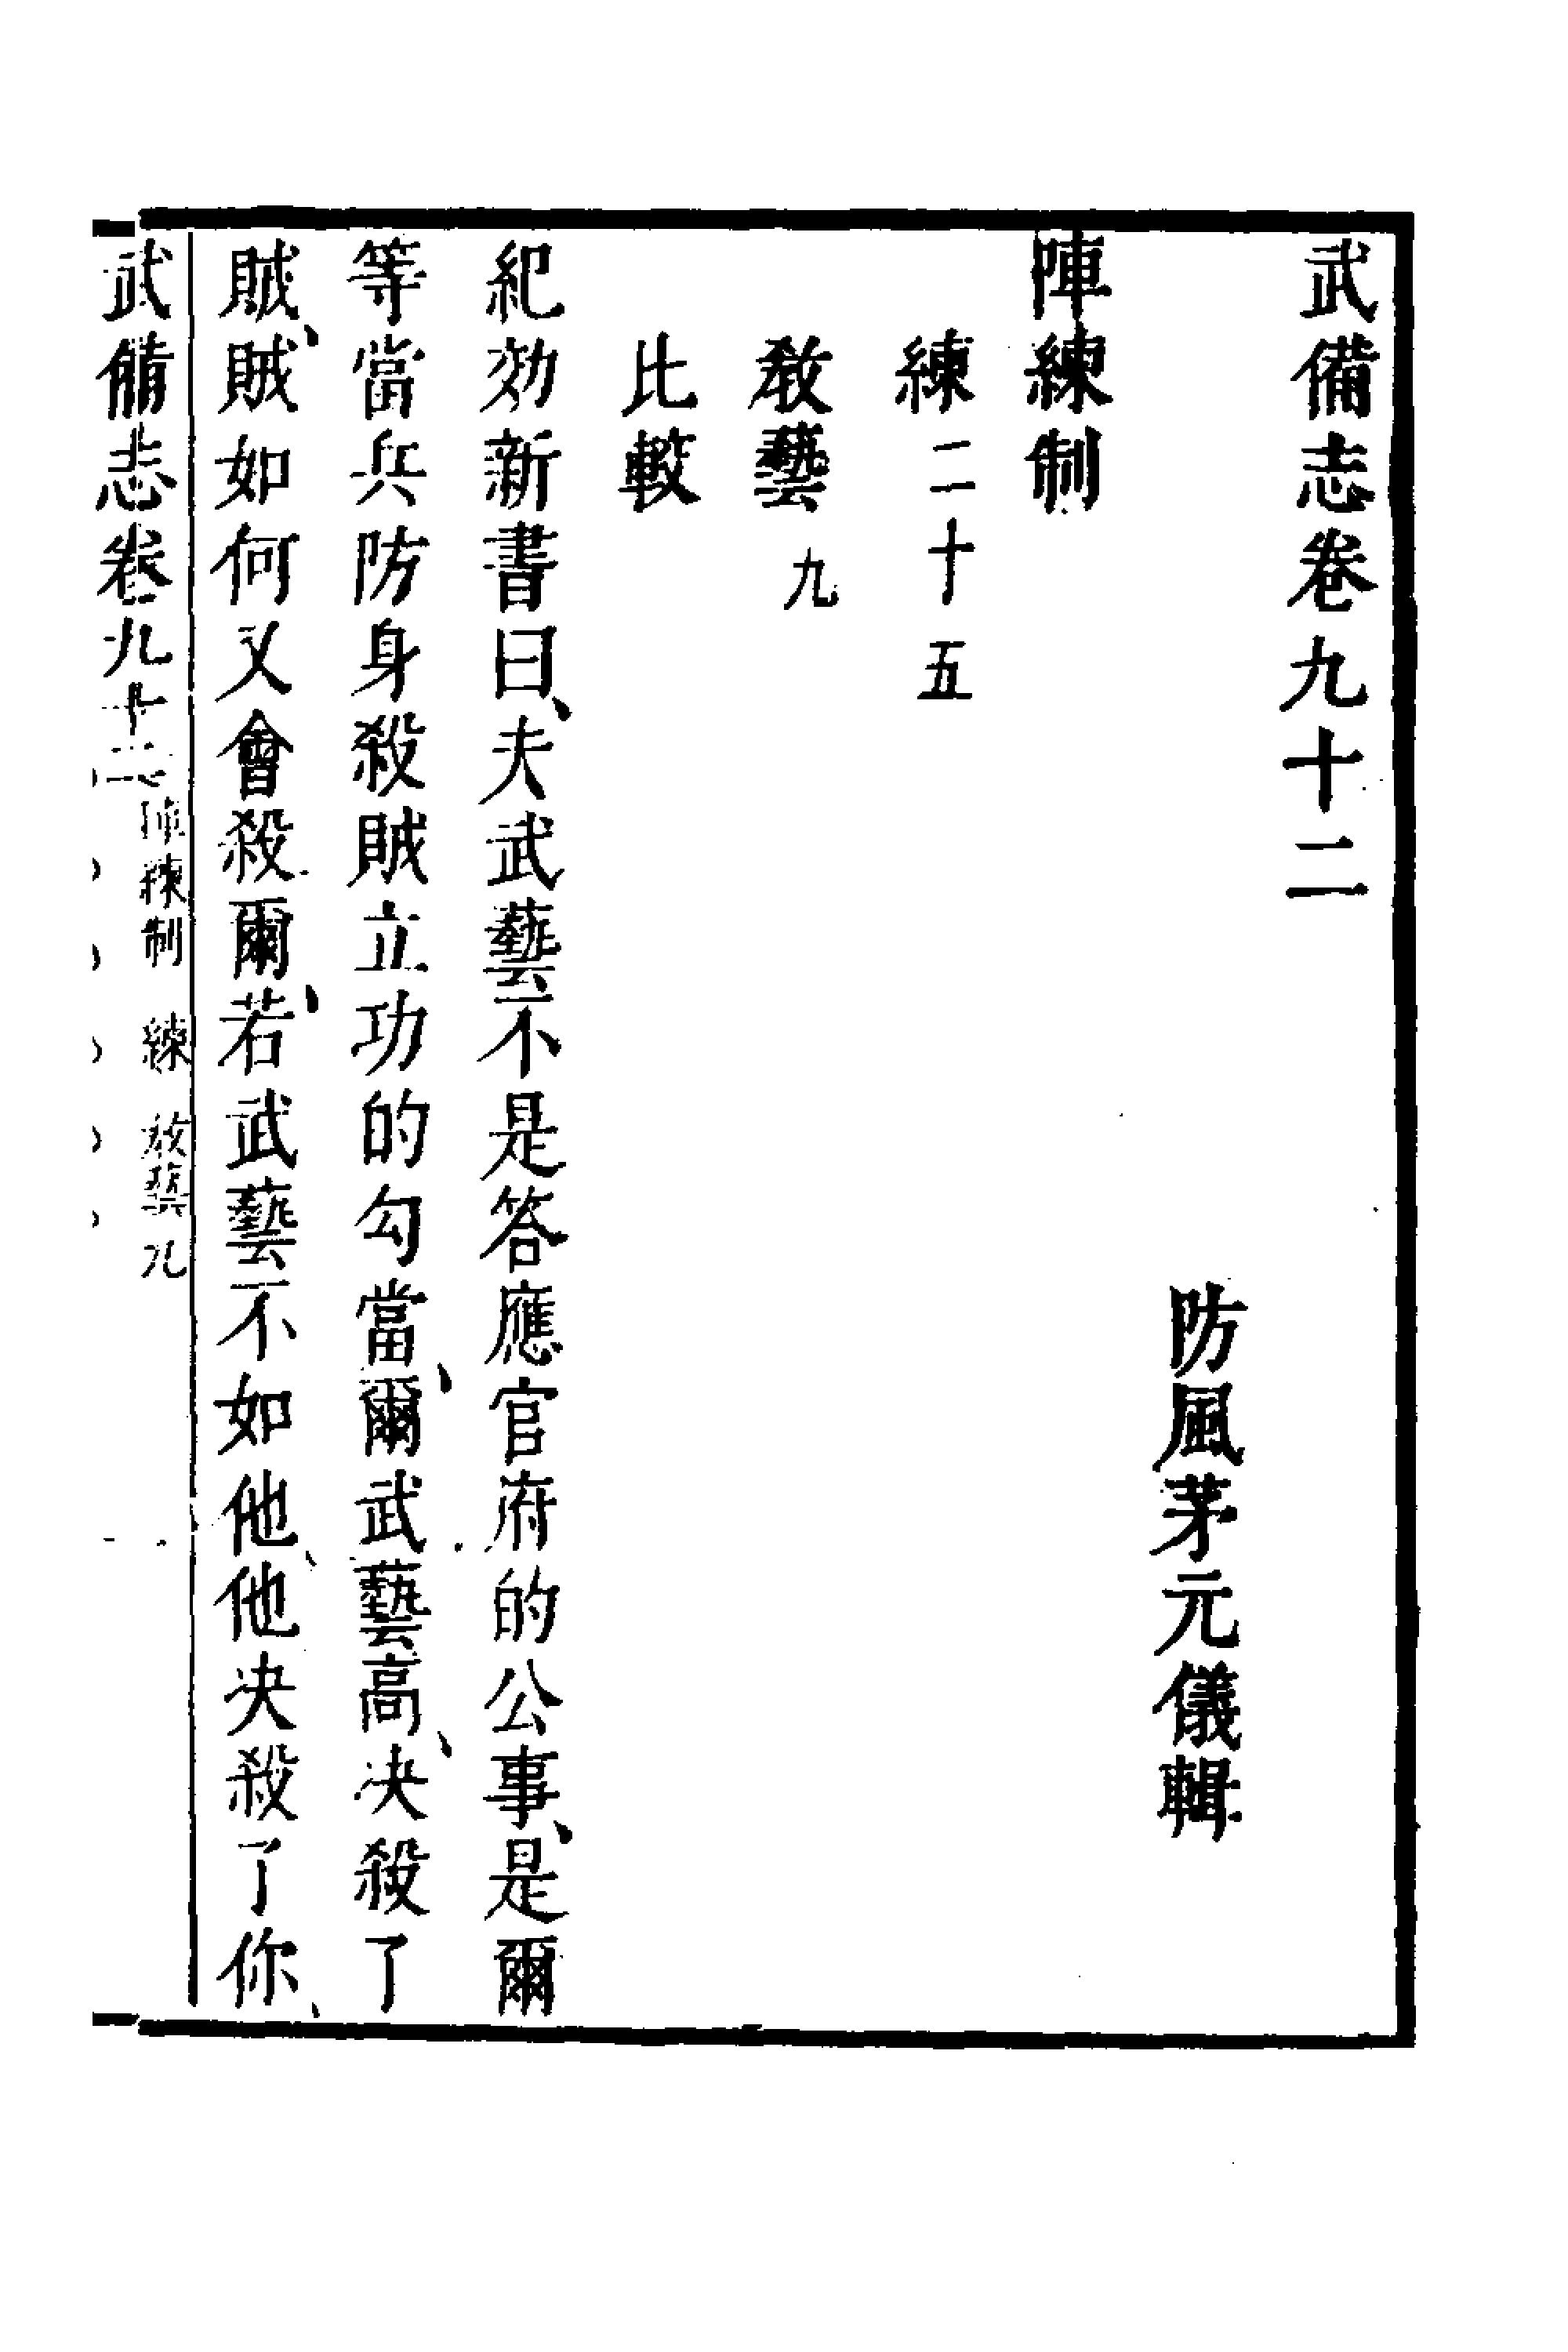 武備志卷九十二
防風茅元儀輯
陣練制
練二十五
教藝九
比較
紀効新書曰、夫武藝不是答應官府的公事、是爾
等當兵防身殺賊立功的勾當、爾武藝高、决殺了
賊、賊如何又會殺爾、若武藝不如他、他决殺了你、
武備志卷九十二 陣練制 練 教藝九